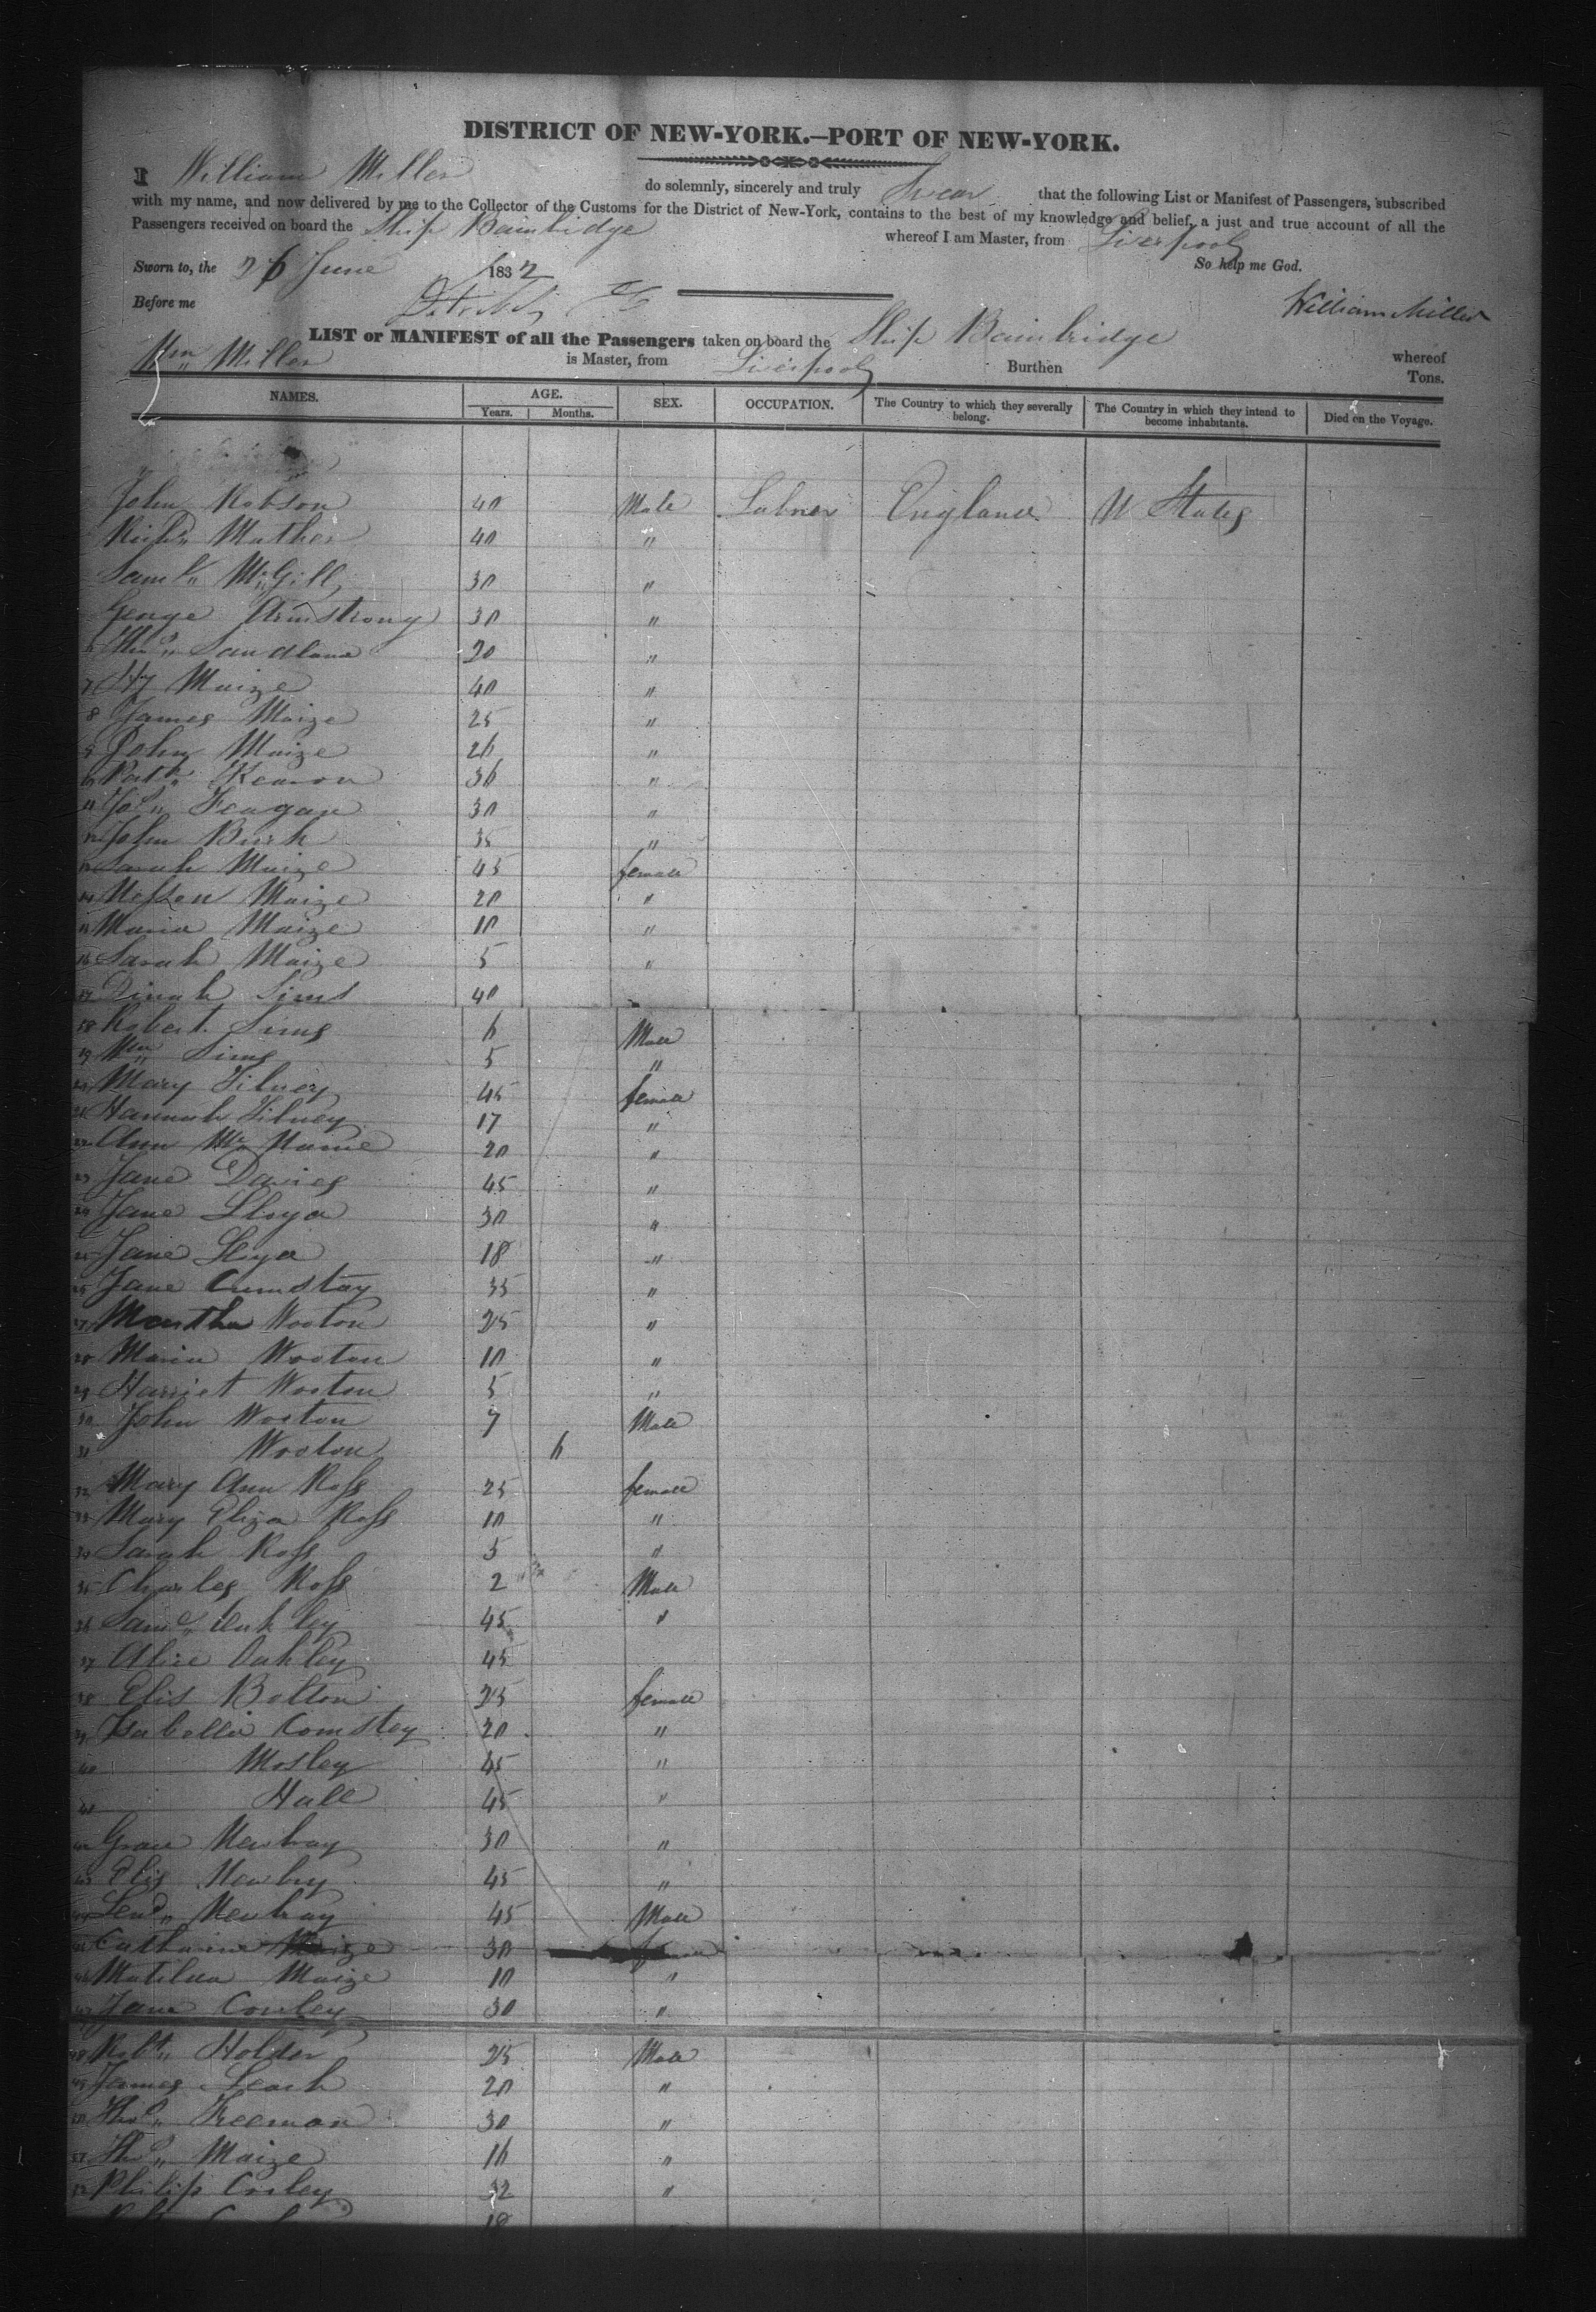 DISTRICT OF NEW-YORK.—PORT OF NEW-YORK.
I William Miller do solemnly, sincerely and truly Swear that the following List or Manifest of Passengers, subscribed
with my name, and now delivered by me to the Collector of the Customs for the District of New-York, contains to the best of my knowledge and belief, a just and true account of all the
Passengers received on board the Ship Bainbridge whereof I am Master, from Liverpool
Sworn to, the 26 June 1832 So help me God.
Before me William Miller
LIST or MANIFEST of all the Passengers taken on board the Ship Bainbridge whereof
Wm Miller is Master, from Liverpool Burthen Tons.
NAMES. AGE. SEX. OCCUPATION. The Country to which they severally belong. The Country in which they intend to become inhabitants. Died on the Voyage.
Years. Months.
John Robson 40 Male Labner England U States
Richd Mather 40 "
Saml McGill 30 "
George Armstrong 30 "
6 Thos Sandland 20 "
7 Hy Maize 40 "
8 James Maize 25 "
9 John Maize 26 "
10 Patk Kearon 36 "
11 Jos Feagan 30 "
12 John Bush 35 "
13 Sarah Maize 45 female
14 Maize 20 "
15 Maria Maize 10 "
16 Sarah Maize 5 "
17 Dinah Sims 40
18 Robert Sims 6 Male
19 Wm Sims 5 "
20 Mary Tilney 45 female
21 Hannah Tilney 17 "
22 Ann Mc 20 "
23 Jane Davies 45 "
24 Jane Lloyd 30 "
25 Jane Lloyd 18 "
26 Jane Cumstay 35 "
27 Martha Wooton 25 "
28 Maria Wooton 10 "
29 Harriet Wooton 5 "
30 John Wooton 7 Male
31 Wooton 6
32 Mary Ann Ross 25 female
33 Mary Eliza Ross 10 "
34 Sarah Ross 5 "
35 Charles Ross 2 Male
36 Saml Oakley 45 "
37 Alice Oakley 45
38 Elis Bolton 25 female
39 Isabella Comstey 20 "
40 Mosley 45 "
41 Hall 45 "
42 Grace Newbay 30 "
43 Elis Newbry 45 "
44 Newbay 45 Male
45 Catharine Maize 30 female
46 Matilda Maize 10 "
47 Jane Conley 30 "
48 Robt Holder 25 Male
49 James Leach 20 "
50 Thos Freeman 30 "
51 Thos Maize 16 "
52 Philip Conley 32 "
18